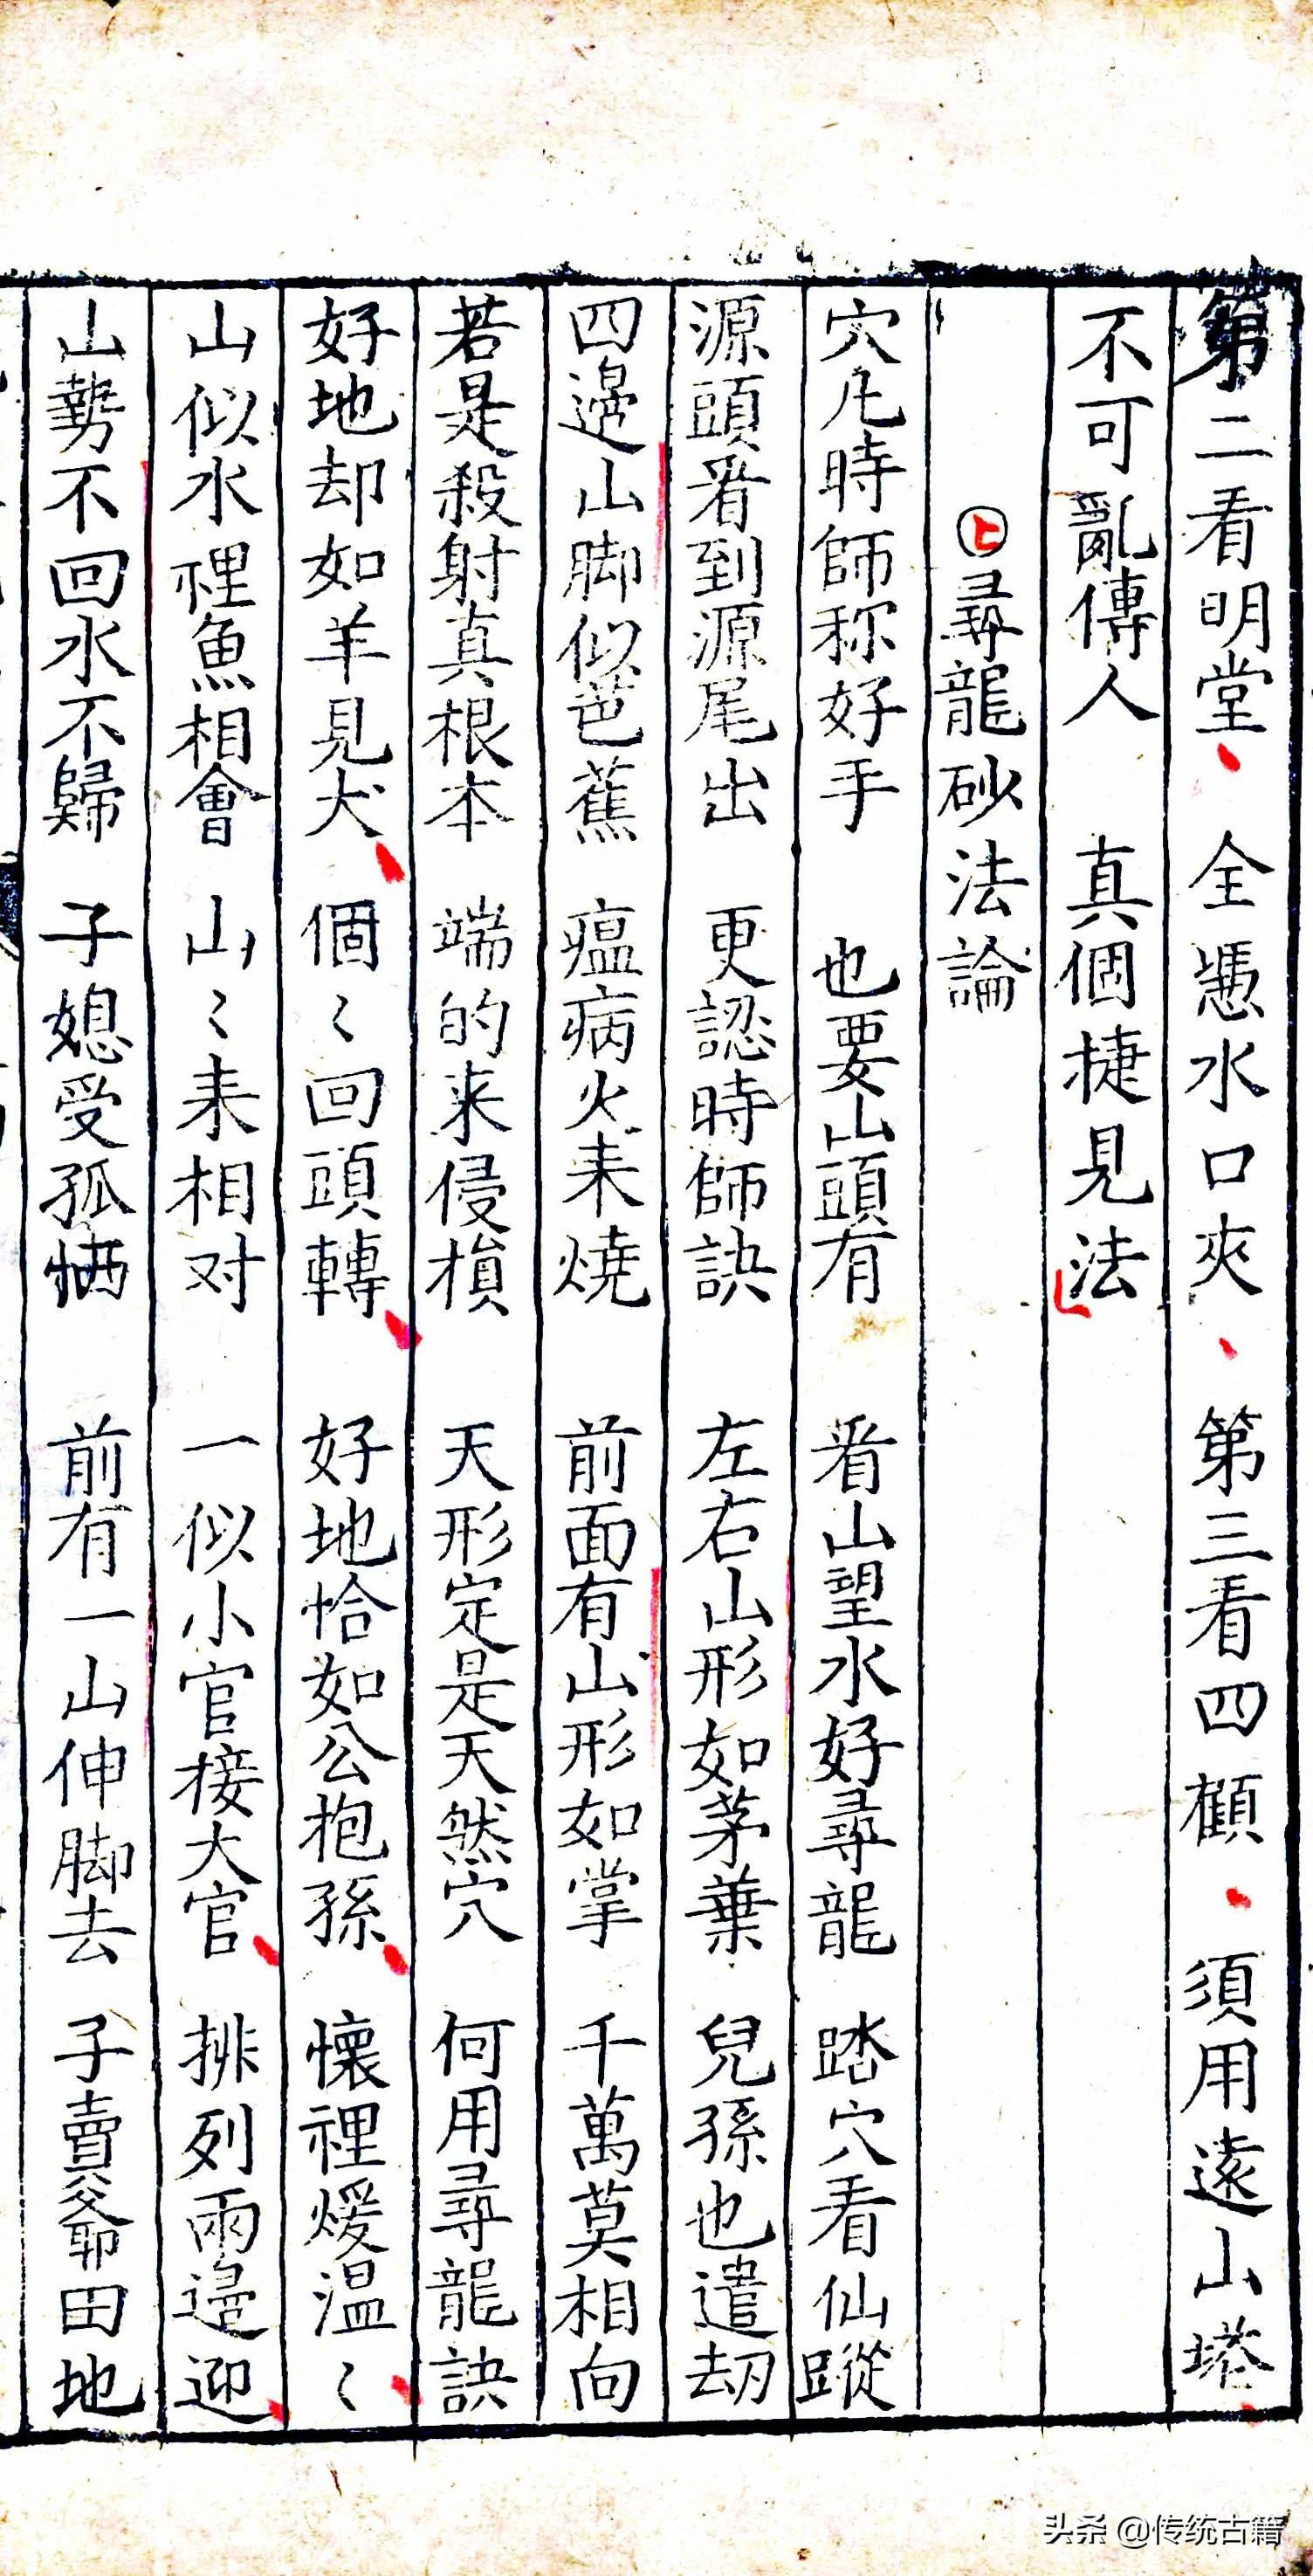 第二看明堂 全憑水口夾 第三看四顧 須用遠山塔
不可亂傳人 真個捷見法
尋龍砂法論
穴凡時師称好手 也要山頭有 看山望水好尋龍 踏穴看仙蹤
源頭看到源尾出 更認時師訣 左右山形如茅葉 兒孫也遣劫
四邉山脚似芭蕉 瘟病火耒燒 前面有山形如掌 千萬莫相向
若是殺射真根本 端的来侵損 天形定是天然穴 何用尋龍訣
好地却如羊見犬 個〻回頭轉 好地恰如公抱孫 懷裡煖温〻
山似水裡魚相會 山〻耒相对 一似小官接大官 排列兩邉迎
山勢不回水不歸 子媳受孤恓 前有一山伸脚去 子賣爺田地
头条 @传统古籍